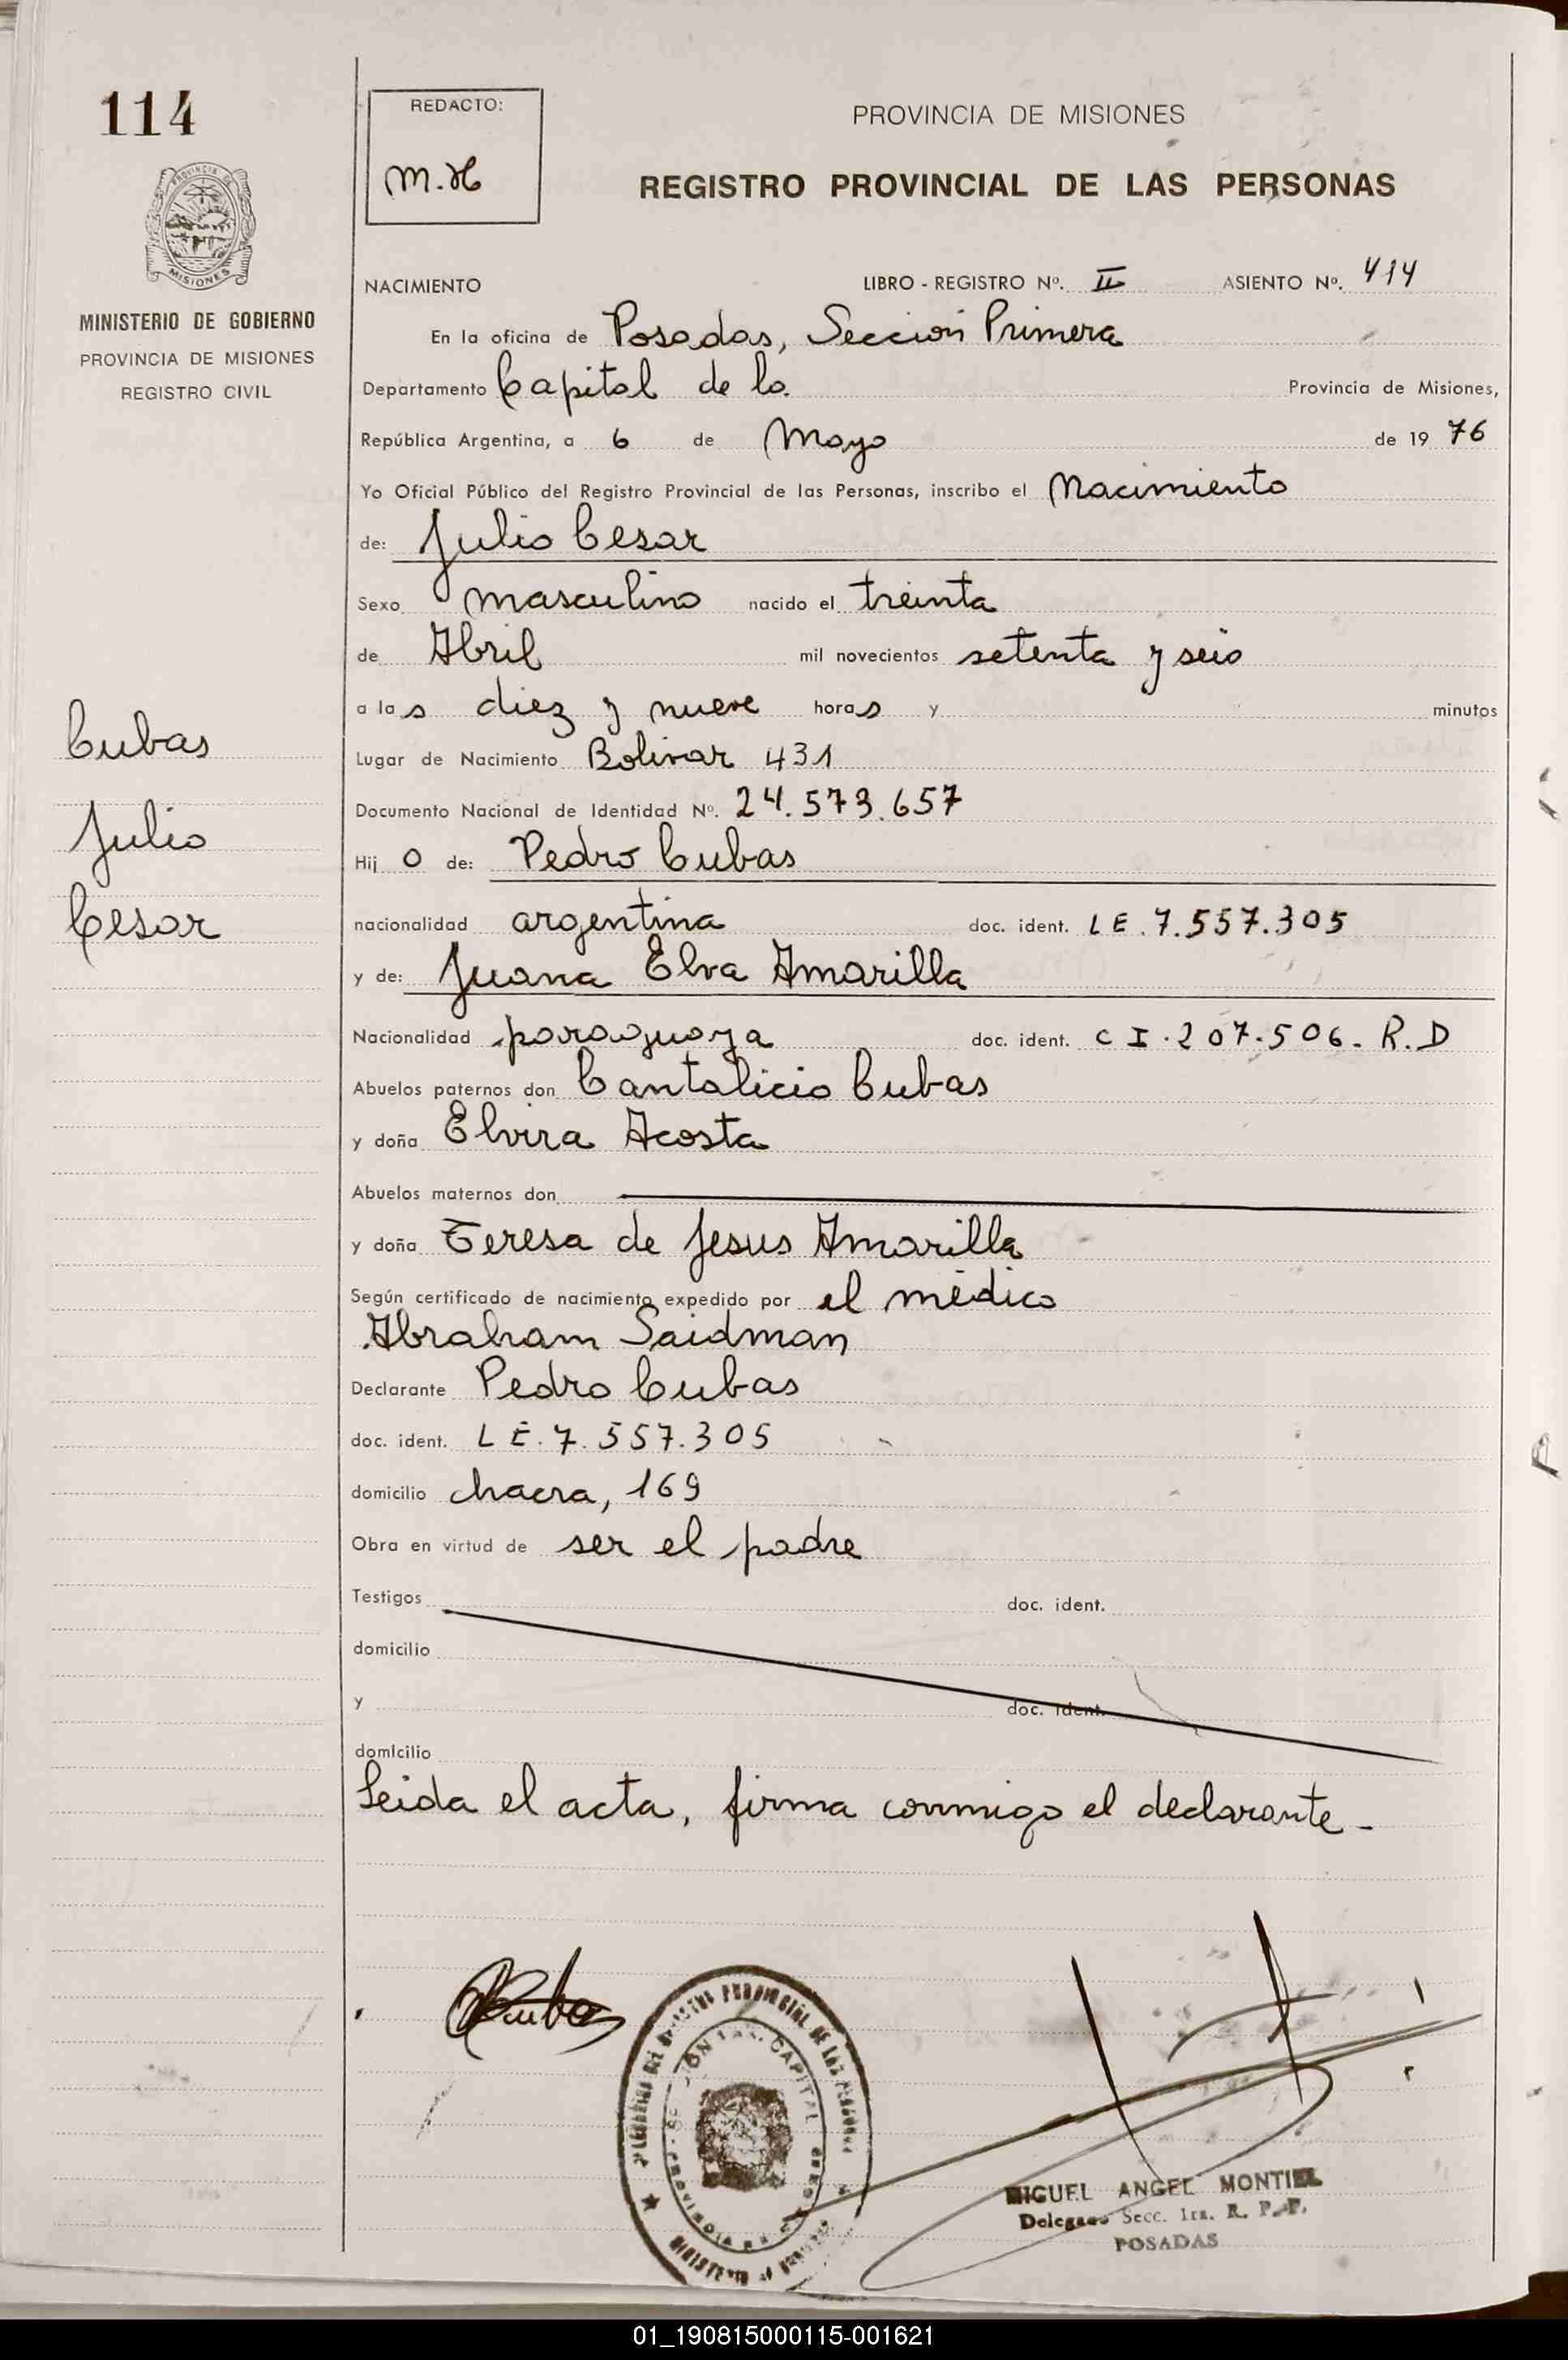 114
REDACTO:
M.H
PROVINCIA DE MISIONES
REGISTRO PROVINCIAL DE LAS PERSONAS
PROVINCIA DE
MISIONES
MINISTERIO DE GOBIERNO
PROVINCIA DE MISIONES
REGISTRO CIVIL
NACIMIENTO LIBRO - REGISTRO Nº. II ASIENTO Nº. 414
En la oficina de Posadas, Sección Primera
Departamento Capital de la Provincia de Misiones,
República Argentina, a 6 de Mayo de 19 76
Yo Oficial Público del Registro Provincial de las Personas, inscribo el Nacimiento
de: Julio Cesar
Sexo masculino nacido el treinta
de Abril mil novecientos setenta y seis
a las diez y nueve horas y minutos
Lugar de Nacimiento Bolivar 431
Documento Nacional de Identidad Nº. 24.573.657
Hij o de: Pedro Cubas
nacionalidad argentina doc. ident. LE.7.557.305
y de: Juana Elva Amarilla
Nacionalidad paraguaya doc. ident. CI.207.506. R.D
Abuelos paternos don Cantalicio Cubas
y doña Elvira Acosta
Abuelos maternos don
y doña Teresa de Jesus Amarilla
Según certificado de nacimiento expedido por el médico
Abraham Saidman
Declarante Pedro Cubas
doc. ident. LE.7.557.305
domicilio chacra, 169
Obra en virtud de ser el padre
Testigos doc. ident.
domicilio
y doc. ident.
domicilio
Leida el acta, firma conmigo el declarante.-
Cubas
Julio
Cesar
MIGUEL ANGEL MONTIEL
Delegado Secc. 1ra. R. P. P.
POSADAS
01_190815000115-001621